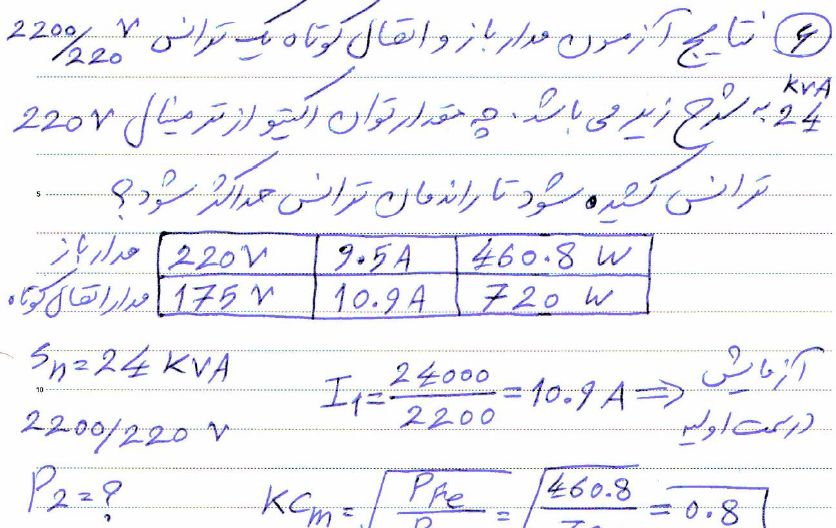 ۶ نتایج آزمون مدار باز و اتصال کوتاه یک ترانس 2200/220 V
24 KVA به شرح زیر می باشد. چه مقدار توان اکتیو از ترمینال 220V
5 ترانس کشیده شود تا راندمان ترانس حداکثر شود؟
مدار باز 220V 9.5A 460.8 W
مدار اتصال کوتاه 175 V 10.9A 720 W
Sn=24 KVA
10 I1=24000/2200=10.9 A ⇒ آزمایش
2200/220 V در سمت اولیه
P2=? KCm=√PFe/ =√460.8/ =0.8